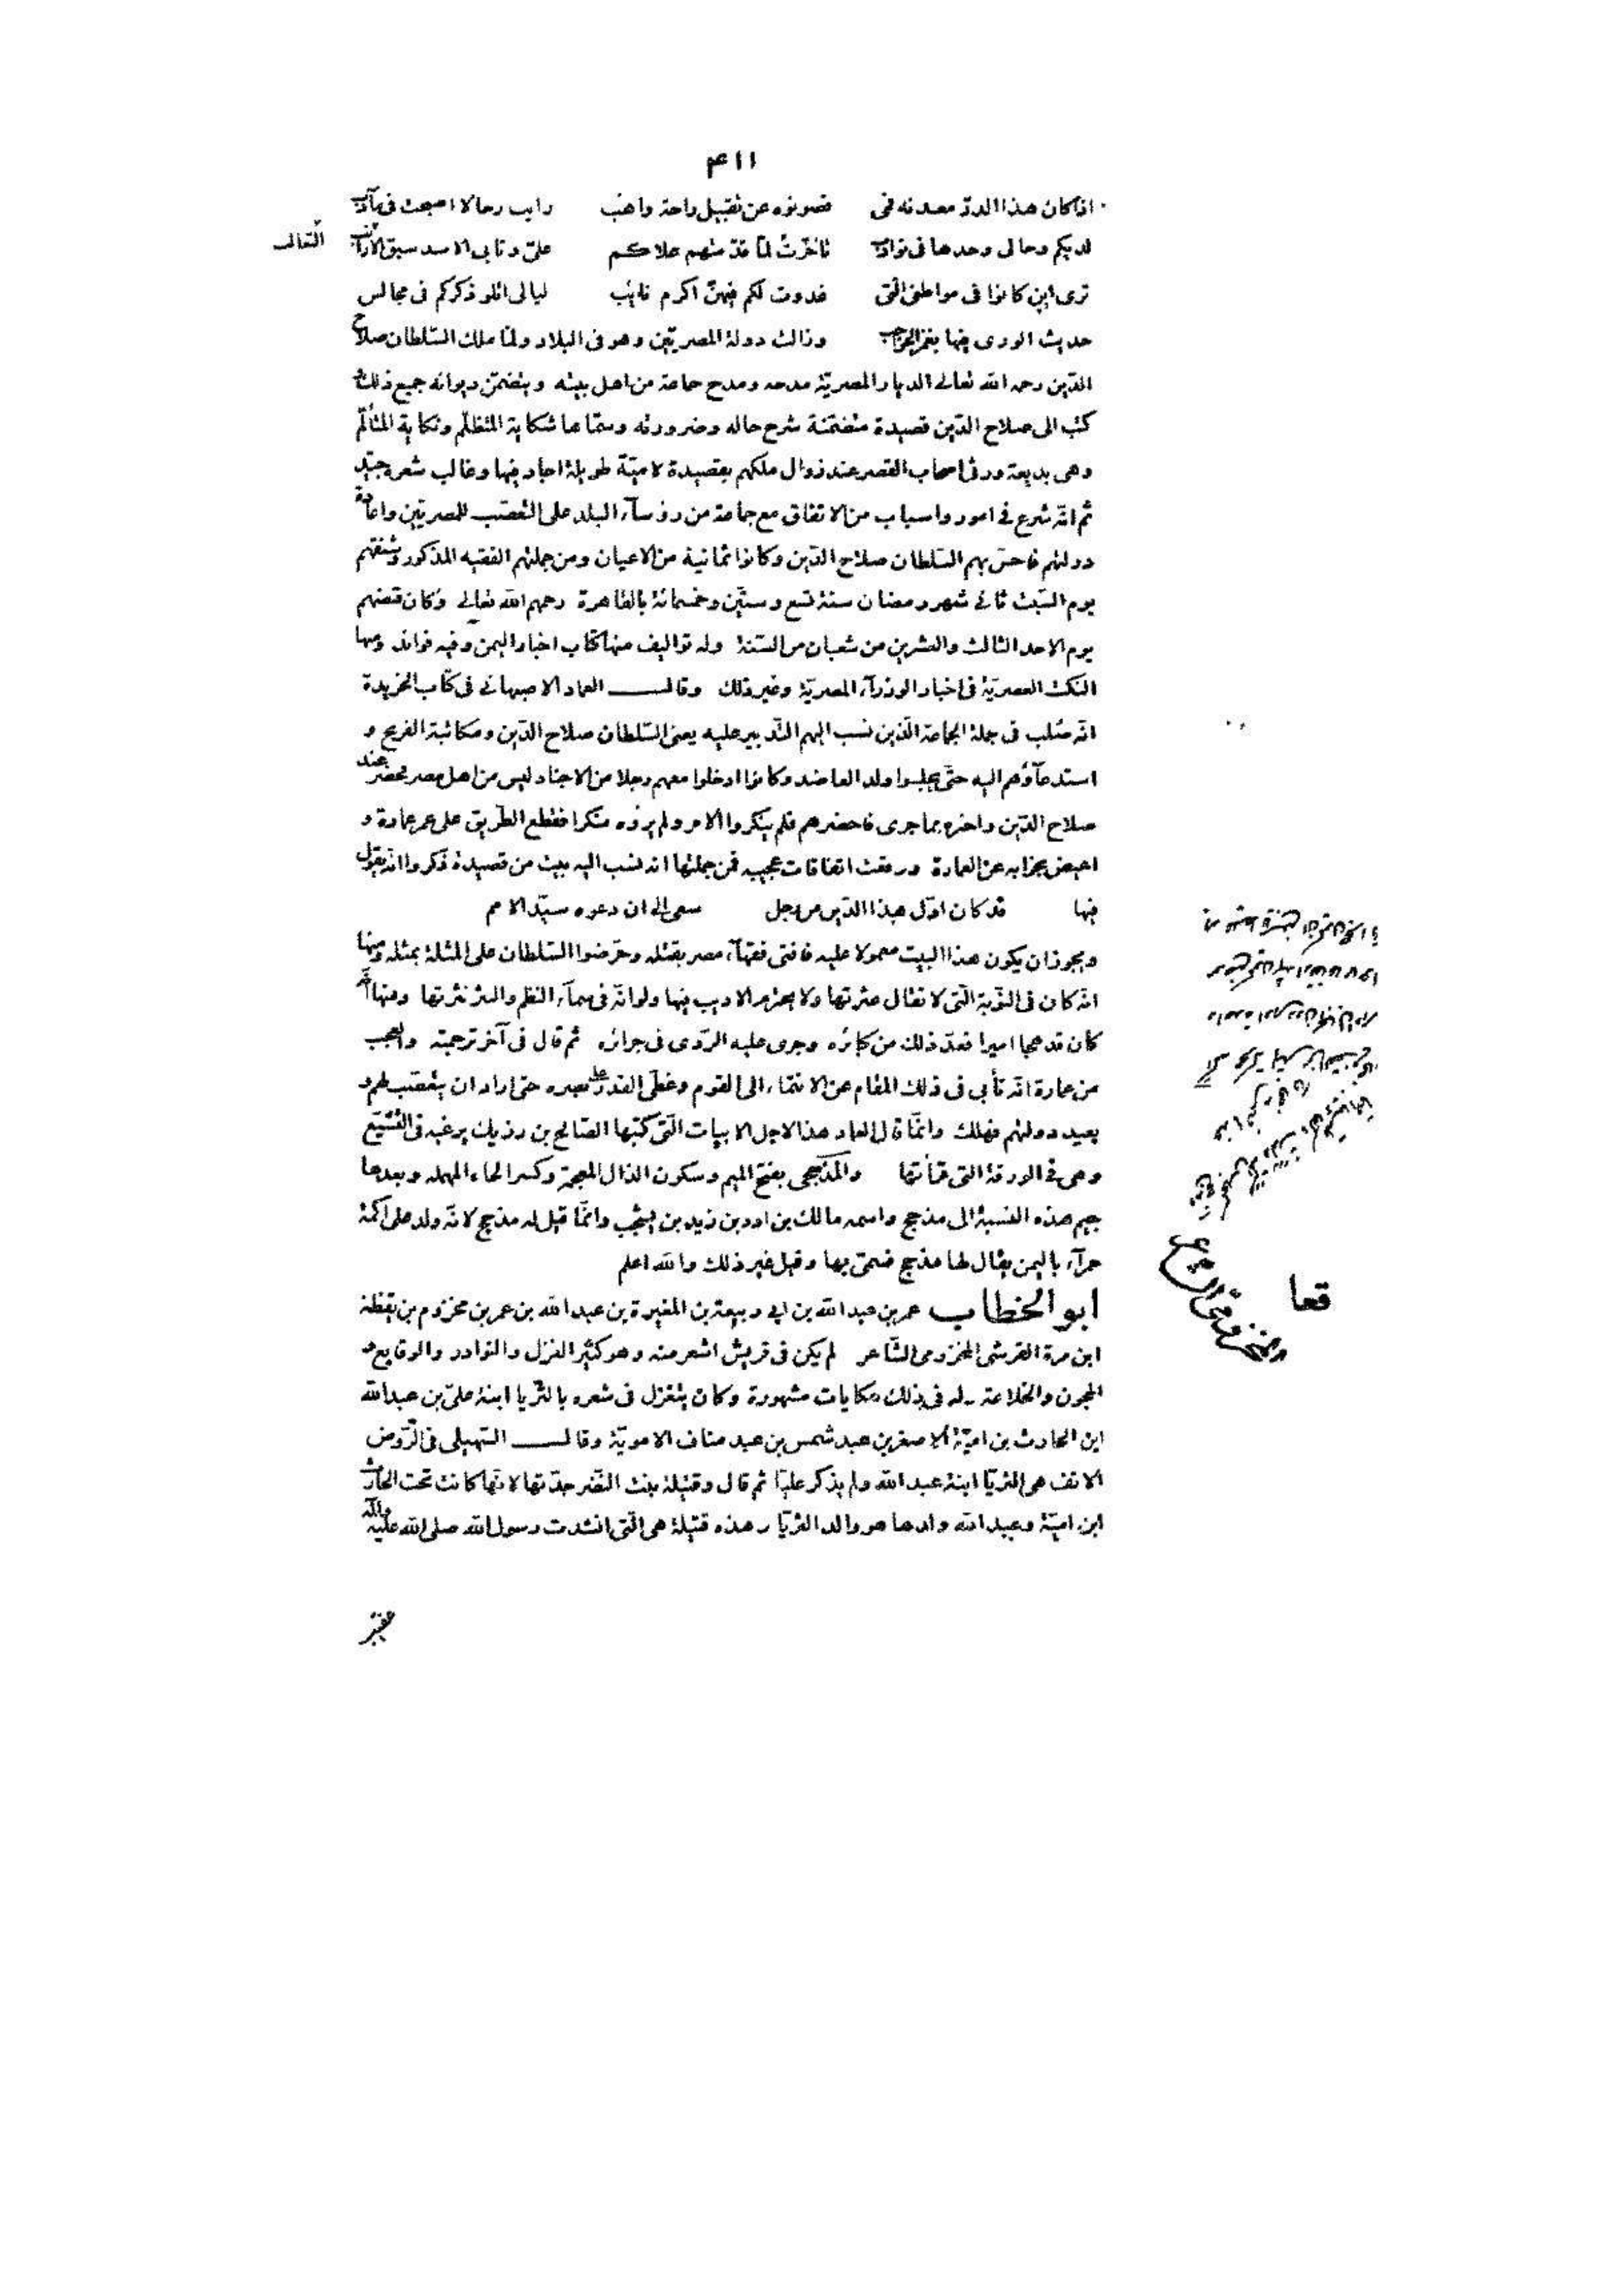 ۴۱۱
اذا كان هذا الدرّ معدنه فمى فصونوه عن تقبيل راحة واهب رايت رجالا اصبحت فى مآدب
لديكم وحالى وحدها فى نوادب تأخّرت لمّا قدّمتهم علاكم علىّ وتابى الاسد سبق الارانب
الثعالب
ترى اين كانوا فى مواطنى الّتى غدوت لكم فيهنّ اكرم نائب ليالى اتلو ذكركم فى مجالس
حديث الورى فيها بغمز الحواجب وزالت دولة المصريّين وهو فى البلاد ولمّا ملك السّلطان صلاح
الدّين رحمه الله تعالى الديار المصريّة مدحه ومدح جماعة من اهل بيته ويتضمّن ديوانه جميع ذلك و
كتب الى صلاح الدّين قصيدة متضمّنة شرح حاله وضرورته وسمّاها شكاية المتظلّم ونكاية المتألّم
وهى بديعة ورثى اصحاب القصر عند زوال ملكهم بقصيدة لاميّة طويلة اجاد فيها وغالب شعره جيّد
ثم انّه شرع فى امور واسباب من الاتفاق مع جماعة من رؤسآء البلد على التّعصّب للمصريّين واعادة
دولتهم فاحسّ بهم السّلطان صلاح الدّين وكانوا ثمانية من الاعيان ومن جملتهم الفقيه المذكور وشنقهم
يوم السّبت ثانى شهر رمضان سنة تسع وستّين وخمسمائة بالقاهرة رحمهم الله تعالى وكان قبضهم
يوم الاحد الثالث والعشرين من شعبان من السّنة وله تواليف منها كتاب اخبار اليمن وفيه فوائد ومنها
النكت العصريّة فى اخبار الوزرآء المصريّة وغير ذلك وقال العماد الاصبهانى فى كتاب الخريدة
انّه صلب فى جملة الجماعة الّذين نسب اليهم التّدبير عليه يعنى السّلطان صلاح الدّين ومكاتبة الفرنج و
استدعآؤهم اليه حتّى يجلسوا ولد العاضد وكانوا ادخلوا معهم رجلا من الاجناد ليس من اهل مصر فحضر عند
صلاح الدّين واخبره بما جرى فاحضرهم فلم ينكروا الامر ولم يروه منكرا فقطع الطّريق على عمر عمارة و
اعيض بخرابه عن العمارة ووقعت اتفاقات عجيبه فمن جملتها انه نسب اليه بيت من قصيدة ذكروا انه يقول
فيها قد كان اوّل هذا الدّين من رجل سعى الى ان دعوه سيّد الامم
ويجوز ان يكون هذا البيت معمولا عليه فافتى فقهآء مصر بقتله وحرّضوا السّلطان على المثلة بمثله ومنها
انّه كان فى النّوبة الّتى لا تقال عثرتها ولا يحترم الاديب فيها ولو انّه فى سمآء النظم والنثر نثرتها ومنها انّه
كان قد هجا اميرا فعدّ ذلك من كبائره وجرى عليه الرّدى فى جرائره ثم قال فى آخر ترجمته والعجب
من عمارة انّه تأبى فى ذلك المقام عن الانتماء الى القوم وغطّى القدر على بصره حتى اراد ان يتعصّب لهم و
يعيد دولتهم فهلك وانّما قال العماد هذا لاجل الابيات الّتى كتبها الصّالح بن رزيك يرغبه فى التّشيّع
وهى فى الورقة التى تمّأتها والمذحجى بفتح الميم وسكون الذال المعجمة وكسر الحاء المهمله وبعدها
جيم هذه النسبة الى مذحج واسمه مالك بن ادد بن زيد بن يشجب وانّما قيل له مذحج لانّه ولد على اكمة
حمرآء باليمن يقال لها مذحج فسمّى بها وقيل غير ذلك والله اعلم
ابو الخطاب عمر بن عبد الله بن ابى ربيعة بن المغيرة بن عبد الله بن عمر بن مخزوم بن يقظة
ابن مرة القرشى المخزومى الشّاعر لم يكن فى قريش اشعر منه وهو كثير الغزل والنوادر والوقايع و
المجون والخلاعة وله فى ذلك حكايات مشهورة وكان يتغزل فى شعره بالثّريا ابنة علىّ بن عبد الله
ابن الحارث بن اميّة الاصغر بن عبد شمس بن عبد مناف الامويّة وقال السّهيلى فى الرّوض
الانف هى الثريّا ابنة عبد الله ولم يذكر عليّا ثم قال وقتيلة بنت النّضر جدّتها لانّها كانت تحت الحارث
ابن اميّة وعبد الله ولدها هو والد الثريّا وهذه قتيلة هى الّتى انشدت رسول الله صلى الله عليه وآله